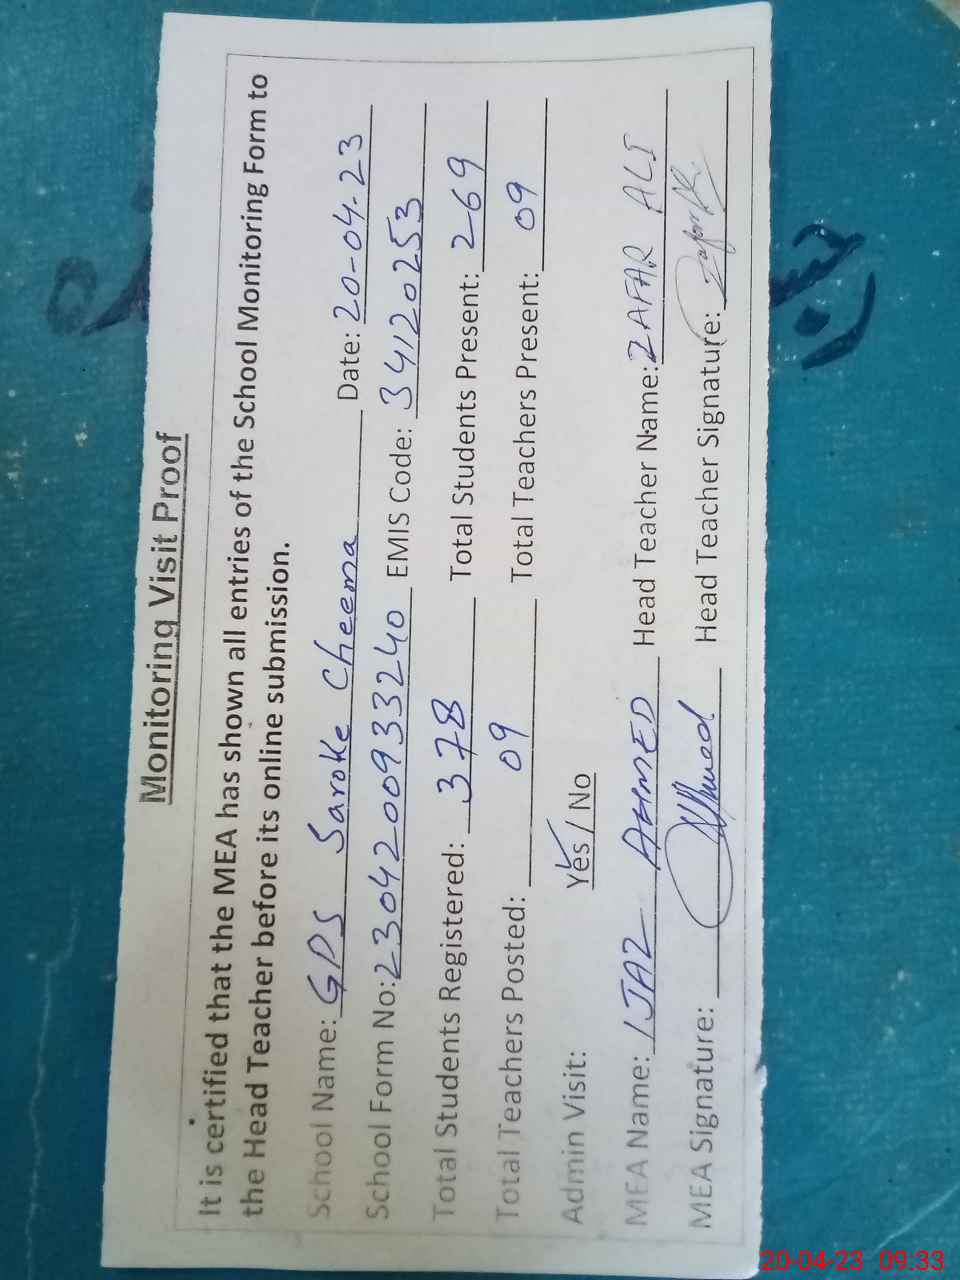 Monitoring Visit Proof
It is certified that the MEA has shown all entries of the School Monitoring Form to
the Head Teacher before its online submission.
School Name: GPS Saroke Cheema Date: 20-04-23
School Form No: 2304200933240 EMIS Code: 34120253
Total Students Registered: 378 Total Students Present: 269
Total Teachers Posted: 09 Total Teachers Present: 09
Admin Visit: Yes / No
MEA Name: IJAZ AHMED Head Teacher Name: ZAFAR ALI
MEA Signature: Ahmed Head Teacher Signature:
20-04-23 09:33